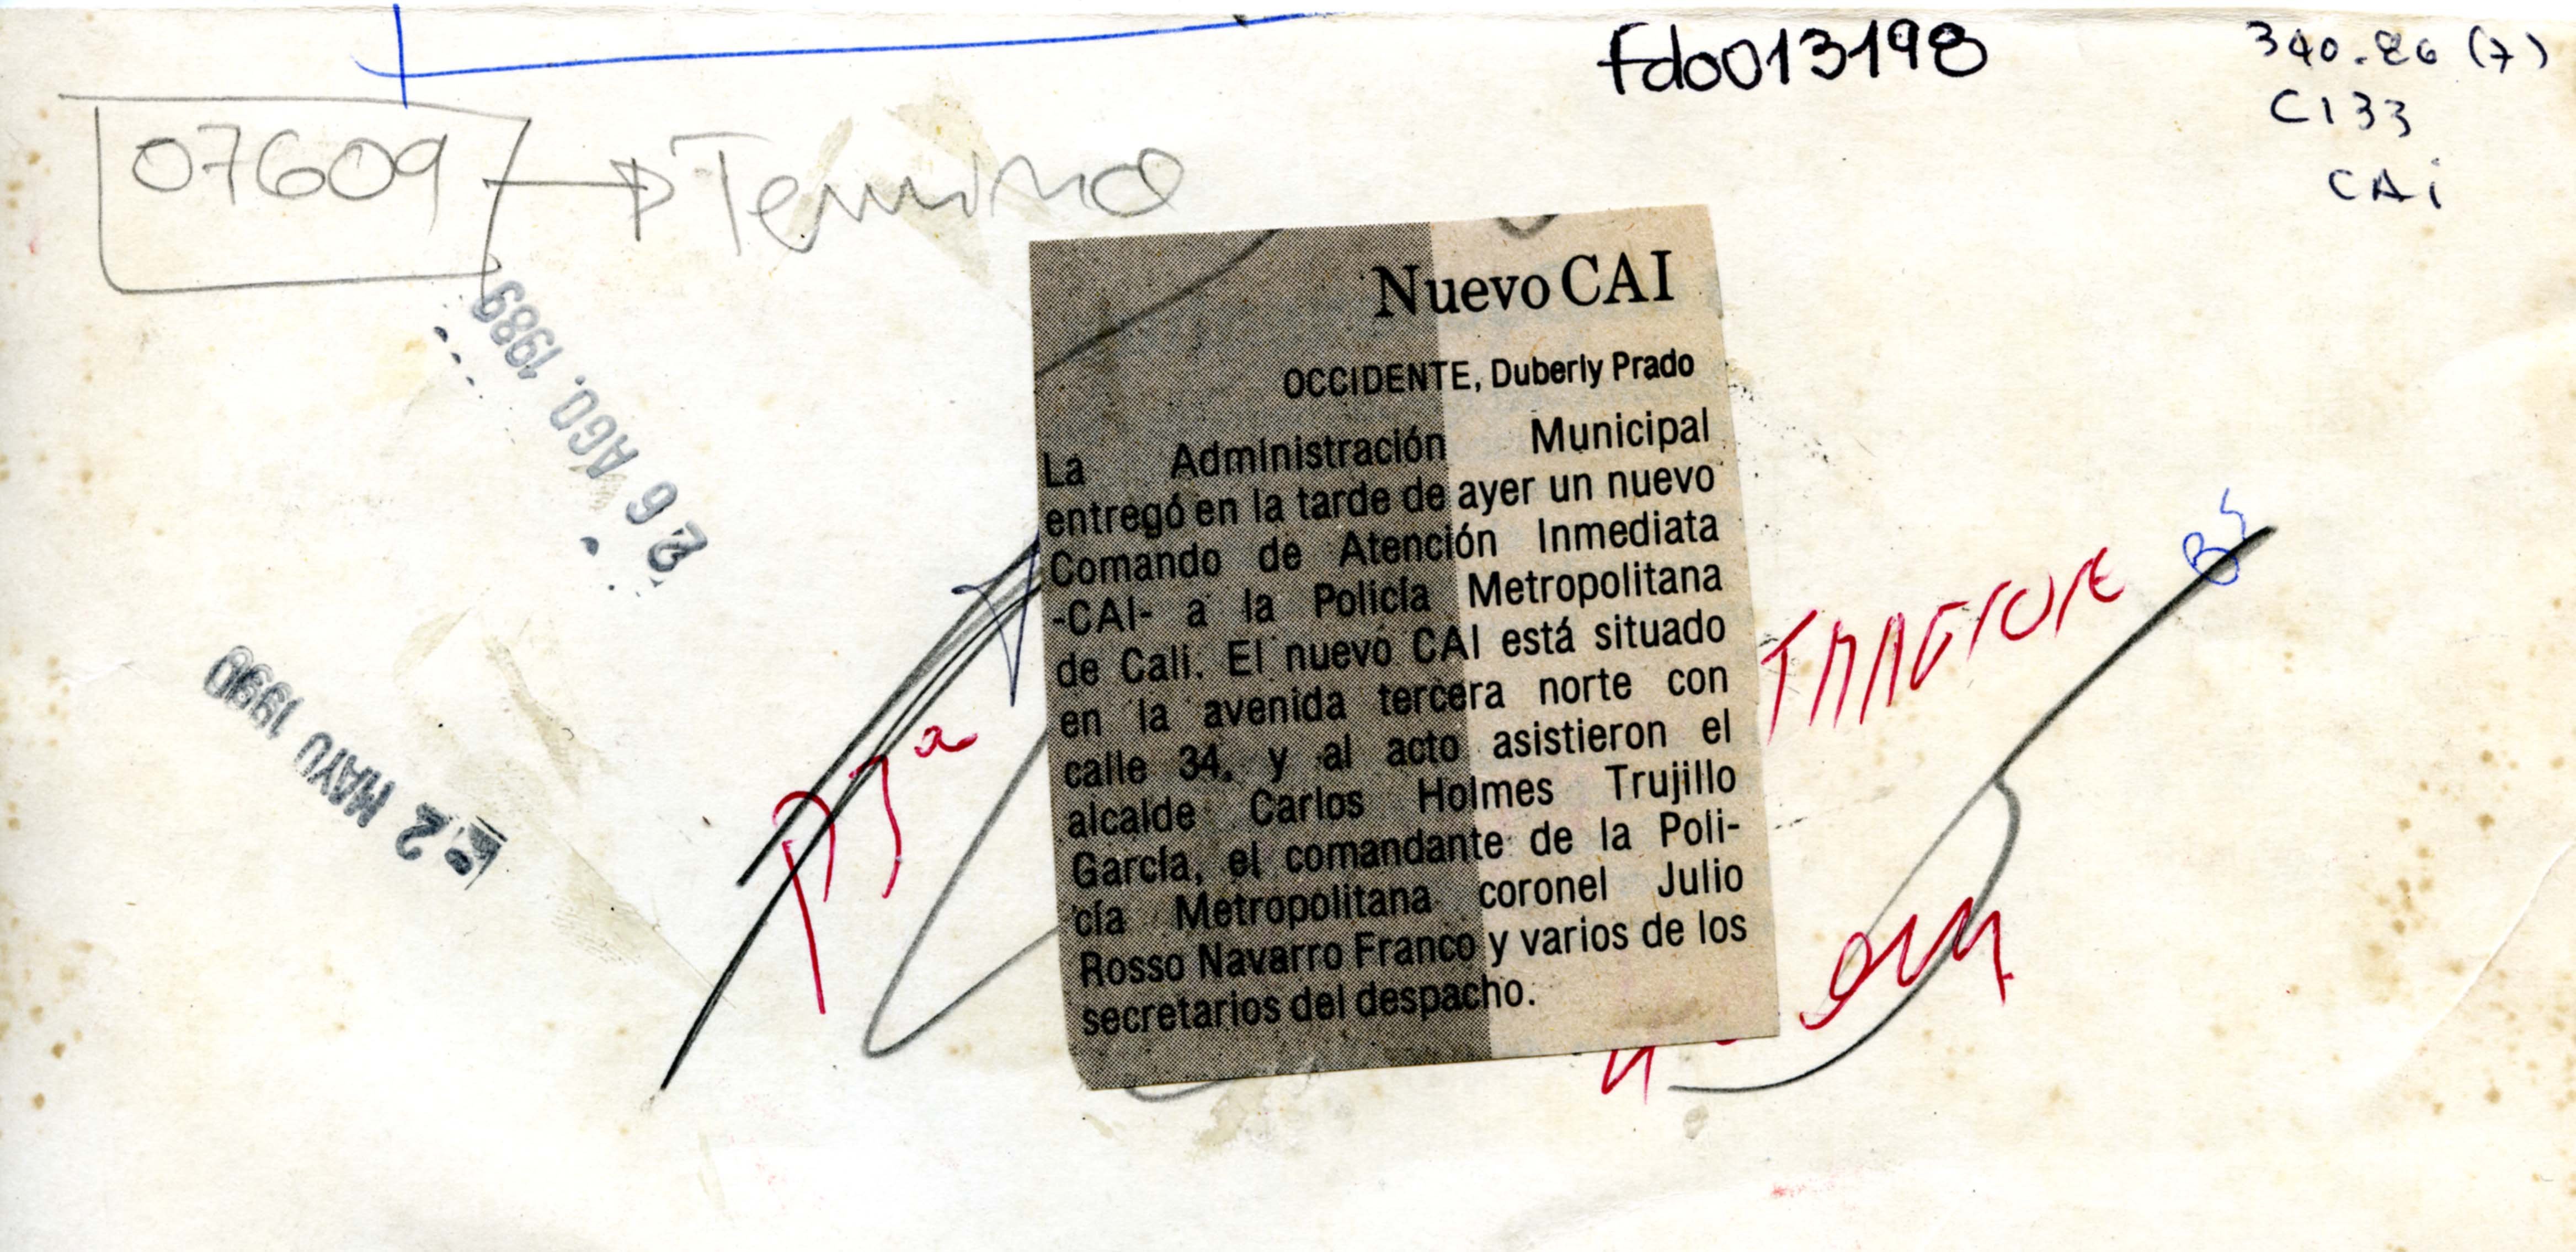 fdo013198
340.86 (7)
C133
CAi
07609
Nuevo CAI
OCCIDENTE, Duberly Prado
La Administración Municipal
entregó en la tarde de ayer un nuevo
Comando de Atención Inmediata
-CAI- a la Policía Metropolitana
de Cali. El nuevo CAI está situado
en la avenida tercera norte con
calle 34, y al acto asistieron el
alcalde Carlos Holmes Trujillo
García, el comandante de la Poli-
cía Metropolitana coronel Julio
Rosso Navarro Franco y varios de los
secretarios del despacho.
26 AGO. 1989
2 MAYO 1990